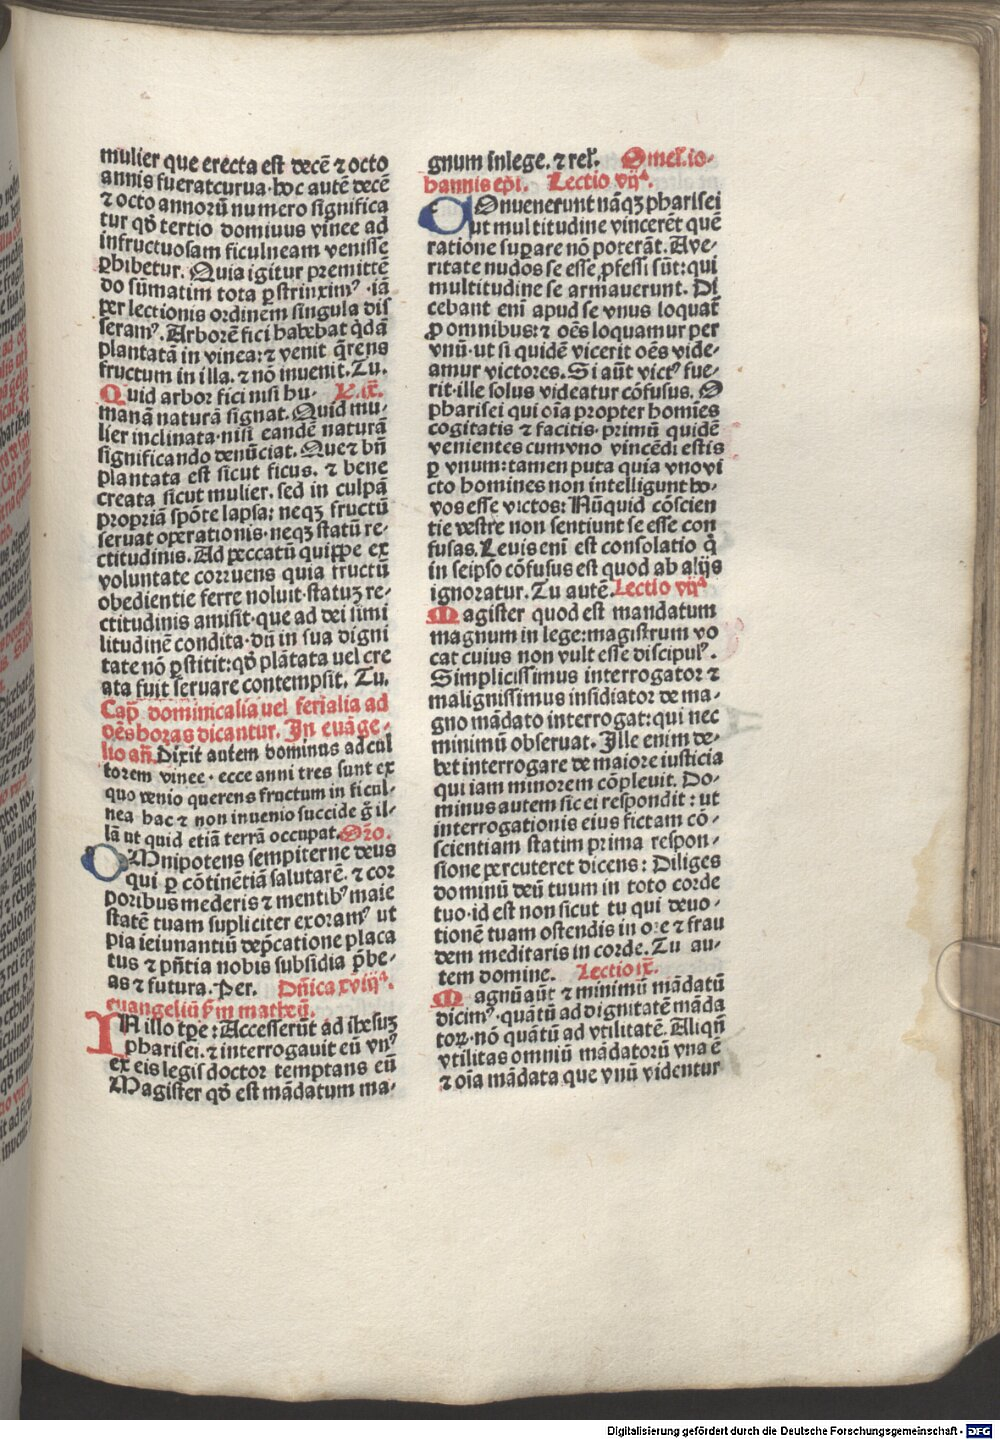 mulier que erecta est decē ⁊ octo
annis fuerat curua·hoc autē decē
⁊ octo annorū numero significa
tur qđ tertio dominus vinee ad
infructuosam ficulneam venisse
ꝑhibetur. Quia igitur premittē
do sūmatim tota ꝑstrinximꝰ·iā
per lectionis ordinem singula dis
seramꝰ. Arborē fici habebat q̇dā
plantatā in vinea:⁊ venit q̄rens
fructum in illa.⁊ nō inuenit. Tu.
Quid arbor fici nisi hu- L.ix.
manā naturā signat. Quid mu-
lier inclinata·nisi eandē naturā
significando denūciat. Que ⁊ bn̄
plantata est sicut ficus. ⁊ bene
creata sicut mulier. sed in culpā
propriā spōte lapsa: neqȝ fructū
seruat operationis·neqȝ statū re-
ctitudinis. Ad peccatū quippe ex
voluntate corruens quia fructū
obedientie ferre noluit·statuȝ re-
ctitudinis amisit·que ad dei simi
litudinē condita·dū in sua digni
tate nō ꝑstitit:qđ plātata uel cre
ata fuit seruare contempsit. Tu.
Cap̄ dominicalia uel ferialia ad
oēs horas dicantur. In euāge-
lio an̄. Dixit autem dominus ad cul
torem vinee·ecce anni tres sunt ex
quo venio querens fructum in ficul-
nea hac ⁊ non inuenio succide g̃ il-
lā ut quid etiā terrā occupat. Or̄o.
OMnipotens sempiterne deus
qui ꝑ cōtinētiā salutarē. ⁊ cor
poribus mederis ⁊ mentibꝰ maie
statē tuam supliciter exoramꝰ ut
pia ieiunantiū dep̄catione placa
tus ⁊ pn̄tia nobis subsidia p̄be-
as ⁊ futura. Per. Dn̄ica xviijᵃ.
euangeliū ẜm matheū.
IN illo tp̄e: Accesserūt ad ihesuȝ
pharisei.⁊ interrogauit eū vnꝰ
ex eis legis doctor temptans eū
Magister qđ est mādatum ma-
gnum in lege.⁊ rel̄. Omel̄.io-
hannis ep̄i. Lectio vijᵃ.
COnuenerunt nāqȝ pharisei
ut multitudine vincerēt quē
ratione suꝑare nō poterāt. A ve-
ritate nudos se esse ꝓfessi sūt:qui
multitudine se armauerunt. Di
cebant enī apud se vnus loquat̄
ꝓ omnibus:⁊ oēs loquamur per
vnū·ut si quidē vicerit oēs vide-
amur victores. Si aūt victꝰ fue-
rit·ille solus videatur cōfusus. O
pharisei qui oīa propter homīes
cogitatis ⁊ facitis·primū quidē
venientes cum vno vincēdi estis
ꝑ vnum:tamen puta quia vno vi
cto homines non intelligunt ho-
vos esse victos: Nūquid cōscien
tie vestre non sentiunt se esse con
fusas. Leuis enī est consolatio q̇
in seipso cōfusus est quod ab alijs
ignoratur. Tu autē. Lectio viijᵃ
Magister quod est mandatum
magnum in lege:magistrum vo
cat cuius non vult esse discipulꝰ.
Simplicissimus interrogator ⁊
malignissimus insidiator de ma-
gno mādato interrogat:qui nec
minimū obseruat. Ille enim de-
bet interrogare de maiore iusticia
qui iam minorem cōpleuit. Do-
minus autem sic ei respondit:ut
interrogationis eius fictam cō-
scientiam statim prima respon-
sione percuteret dicens: Diliges
dominū deū tuum in toto corde
tuo·id est non sicut tu qui deuo-
tionē tuam ostendis in ore ⁊ frau
dem meditaris in corde. Tu au-
tem domine. Lectio ix.
Magnū aūt ⁊ minimū mādatū
dicimꝰ·quātū ad dignitatē māda
torꝝ·nō quātū ad vtilitatē. Aliqn̄
vtilitas omniū mādatorū vna ē
⁊ oīa mādata que vnū videntur
Digitalisierung gefördert durch die Deutsche Forschungsgemeinschaft - DFG